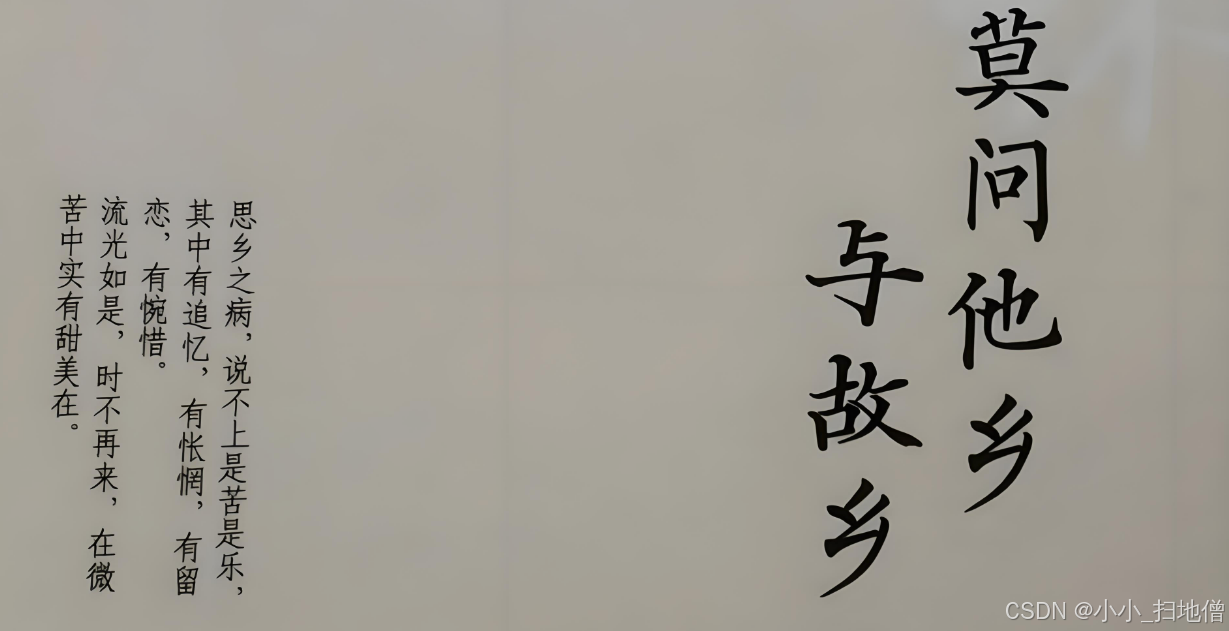 莫问他乡
与故乡
思乡之病，说不上是苦是乐，
其中有追忆，有怅惘，有留
恋，有惋惜。
流光如是，时不再来，在微
苦中实有甜美在。
CSDN @小小_扫地僧